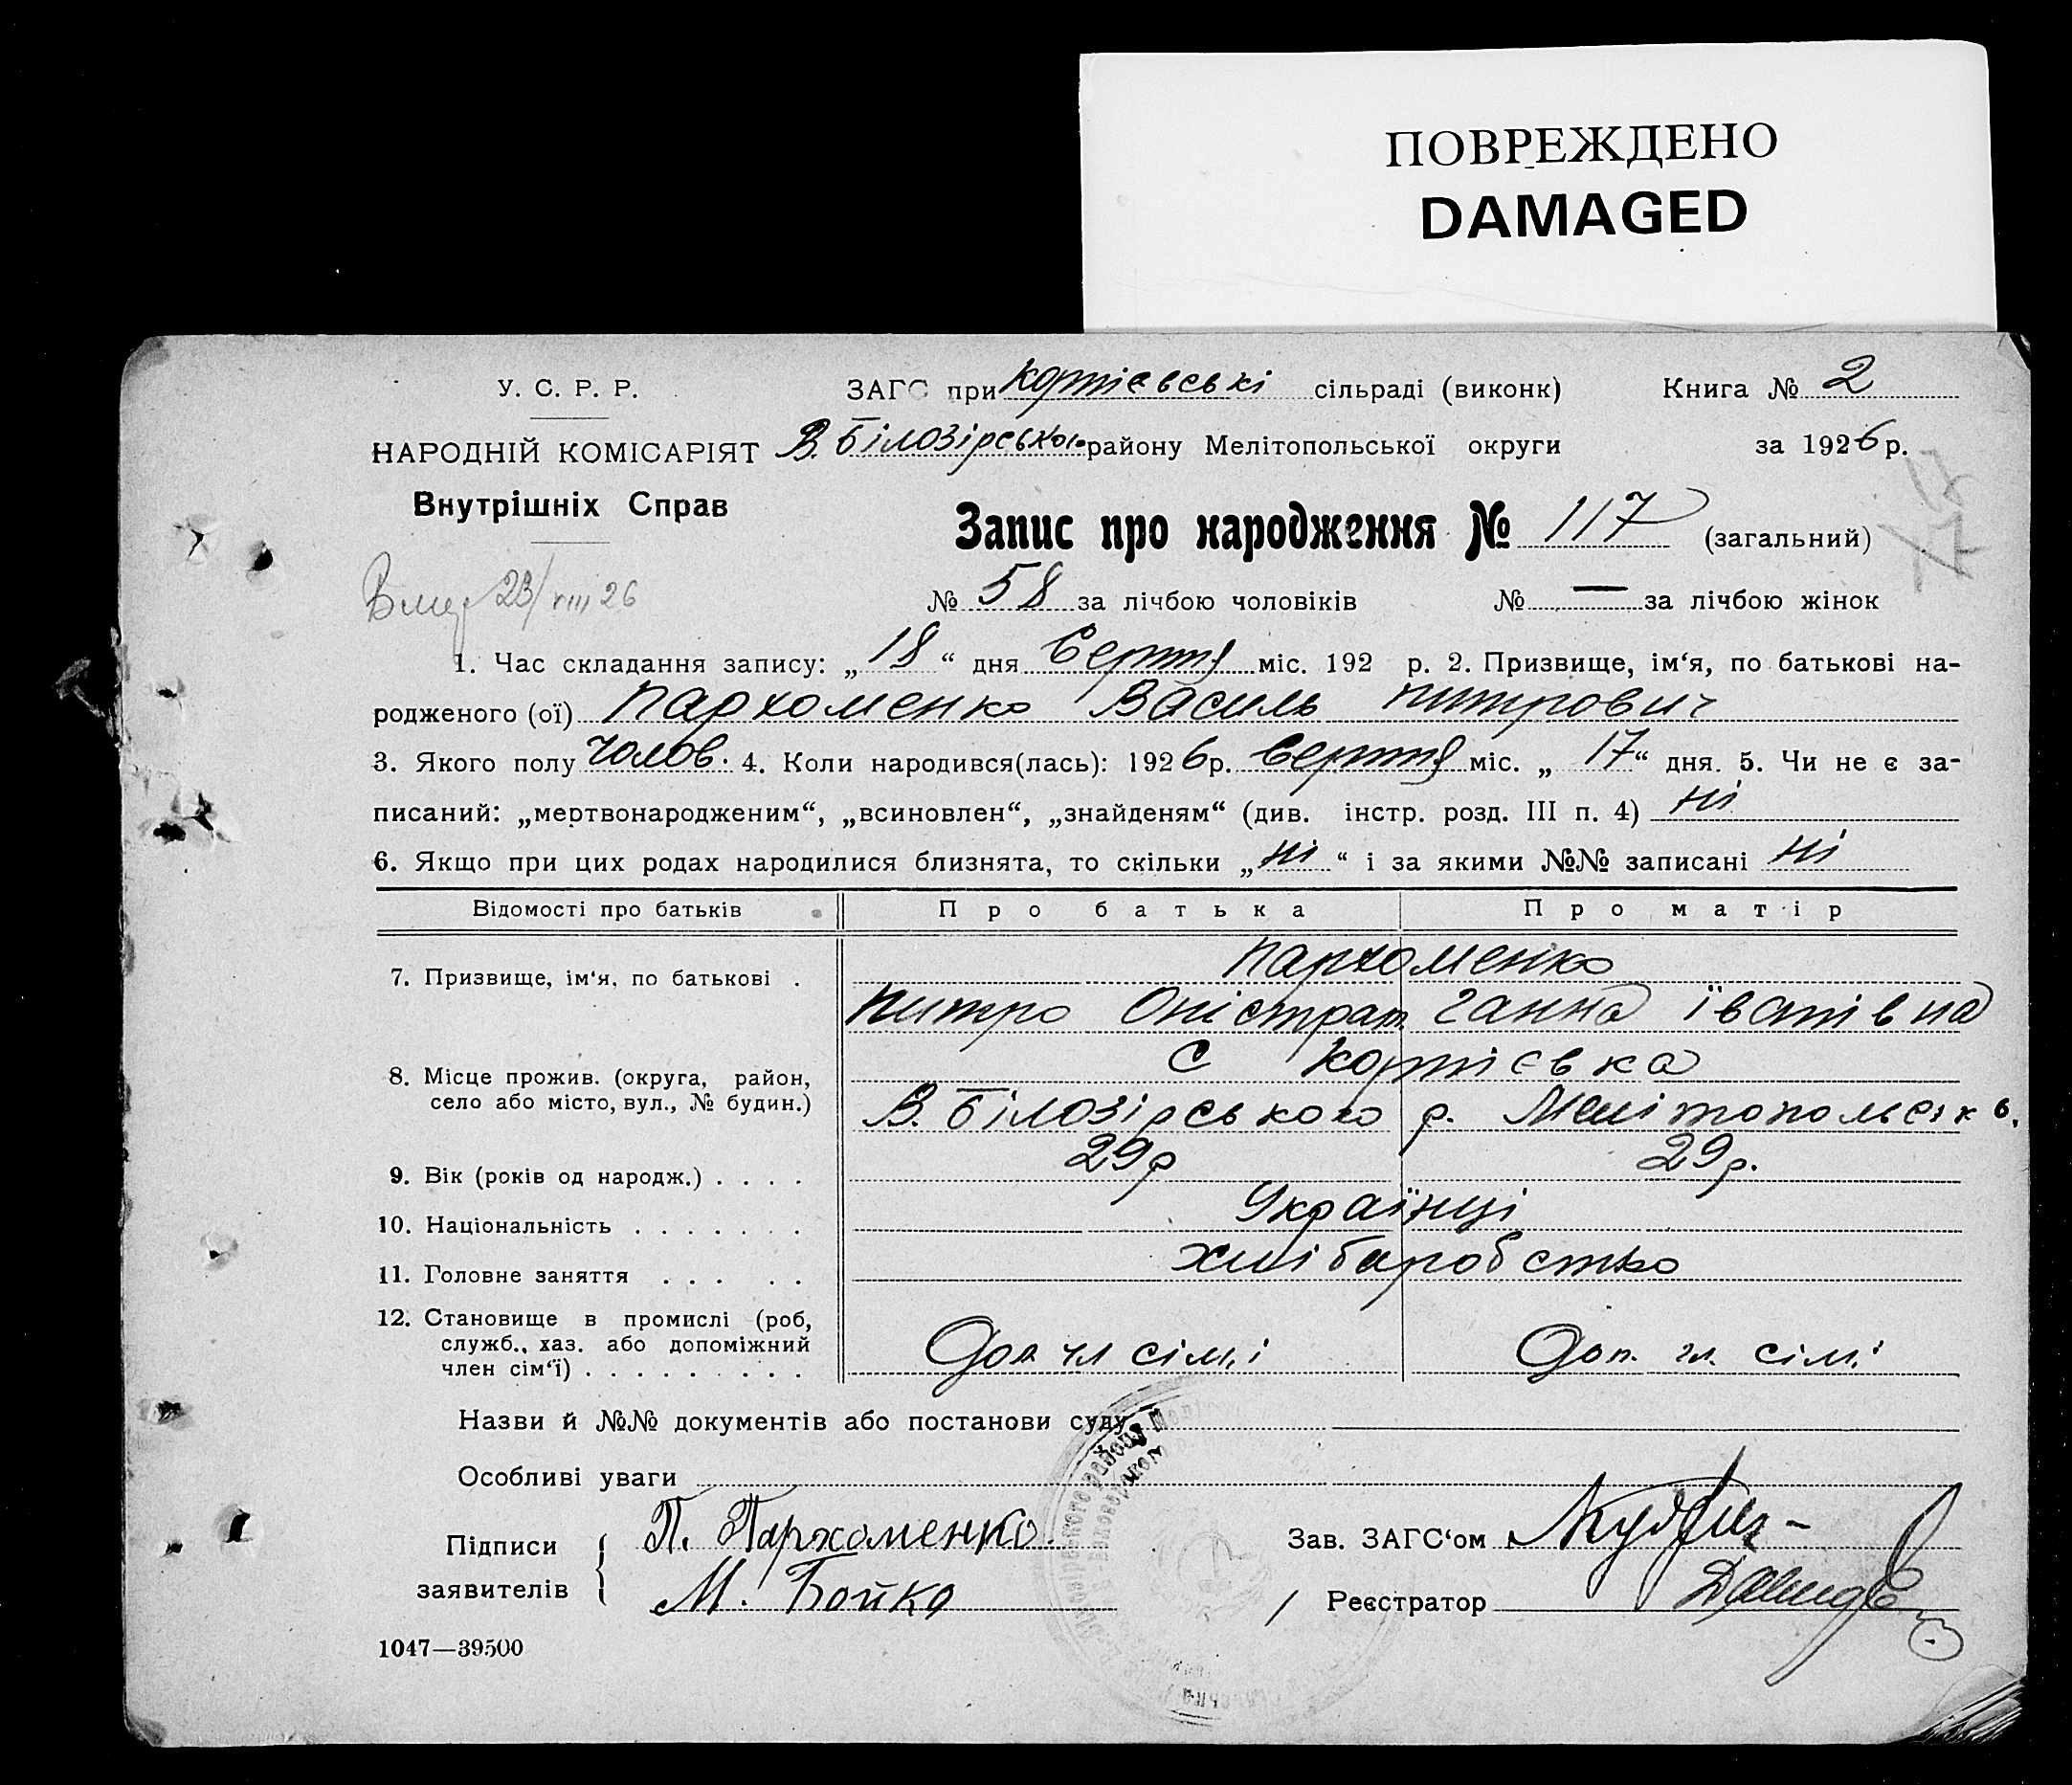 ПОВРЕЖДЕНО
DAMAGED
У. С. Р. Р.
НАРОДНІЙ КОМІСАРІЯТ
Внутрішніх Справ
ЗАГС при Кортієвські сільраді (виконк)
В. Білозірського району Мелітопольської округи
Книга № 2
за 1926 р.
Запис про народження № 117 (загальний)
23/VIII 26
№ 58 за лічбою чоловіків № — за лічбою жінок
1. Час складання запису: „18“ дня Серпня міс. 192 р. 2. Призвище, ім‘я, по батькові на-
родженого (ої) Пархоменко Василь Питрович
3. Якого полу Чолов. 4. Коли народився(лась): 1926 р. Серпня міс. „17“ дня. 5. Чи не є за-
писаний: „мертвонародженим“, „всиновлен“, „знайденям“ (див. інстр. розд. III п. 4) ні
6. Якщо при цих родах народилися близнята, то скільки „ні“ і за якими №№ записані ні
Відомості про батьків Про батька Про матір
7. Призвище, ім‘я, по батькові . Пархоменко
Питро Оністрат. Ганна
8. Місце прожив. (округа, район,
село або місто, вул., № будин.)
С Кортієвка
В. Білозірського р. Мелітопольськ о.
9. Вік (років од народж.) . . . . 29р 29р.
10. Національність . . . . . . . Українці
11. Головне заняття . . . . . хлібаробство
12. Становище в промислі (роб,
служб., хаз. або допоміжний
член сім‘ї) . . . . . . . . .
Доп чл сімі Доп. чл. сімі
Назви й №№ документів або постанови суду
Особливі уваги
Підписи
заявителів
П. Пархоменко
М. Бойко
Зав. ЗАГС‘ом
Реєстратор
1047—39500